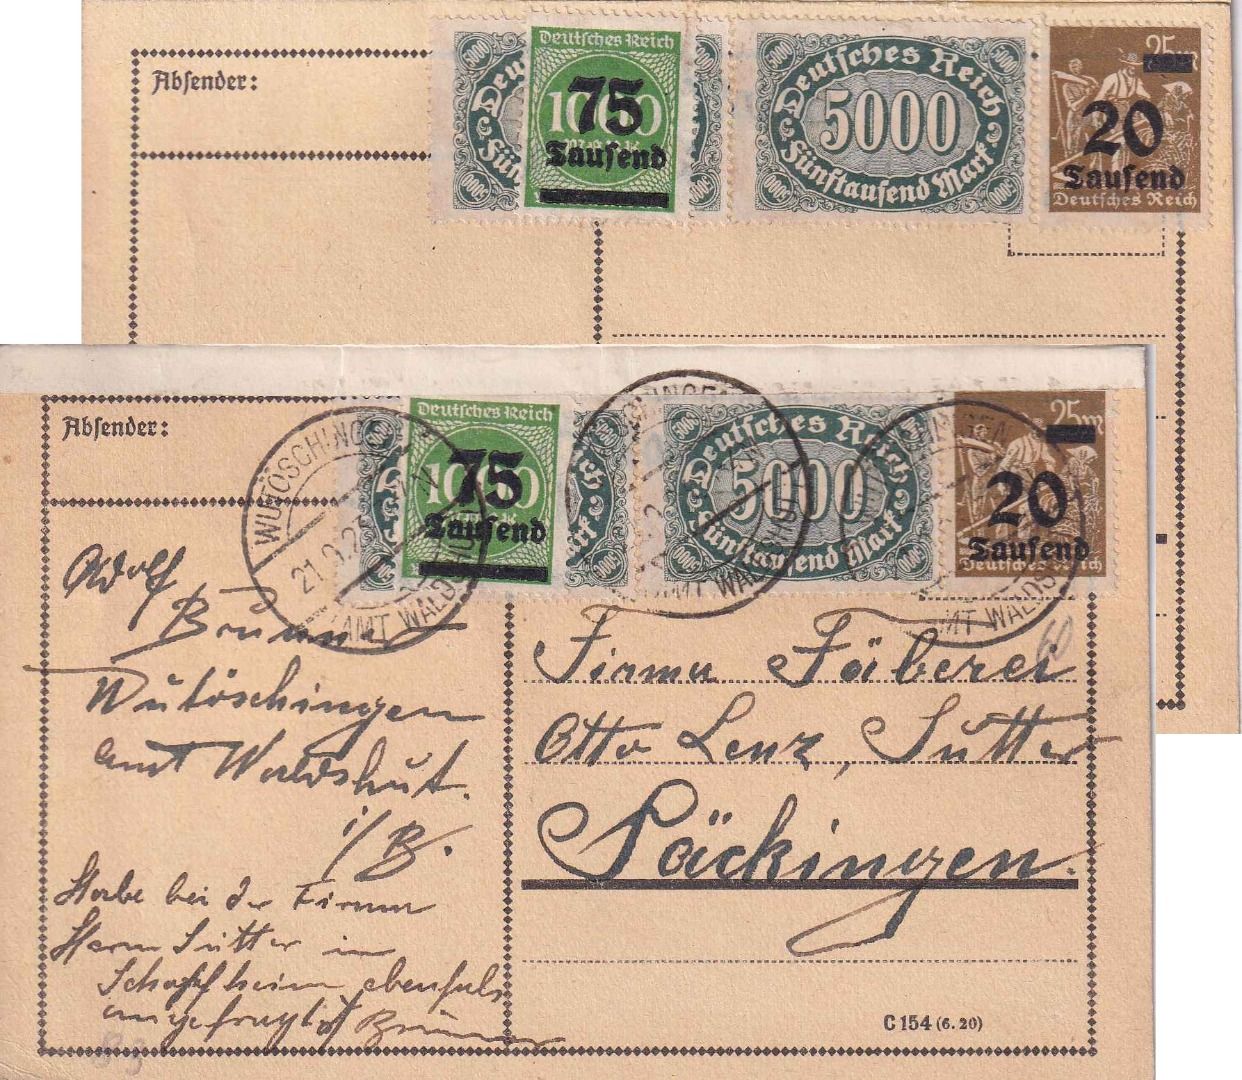 Absender:
5000
Deutsches Reich
1000
75
Tausend
Deutsches Reich
5000
Fünftausend Mark
25m
20
Tausend
Deutsches Reich
Absender:
WUTÖSCHINGEN
21.9.2
AMT WALDSHUT
Deutsches Reich
1000
75
Tausend
Deutsches Reich
5000
Fünftausend Mark
25m
20
Tausend
Deutsches Reich
60
Adolf
Brunner
Wutöschingen
amt Waldshut.
i/B.
Firma Fäberei
Otto Lenz, Sutter
Säckingen.
Habe bei der Firma
Herrn Sutter in
Schopfheim ebenfals
angefragt
C 154 (6. 20)